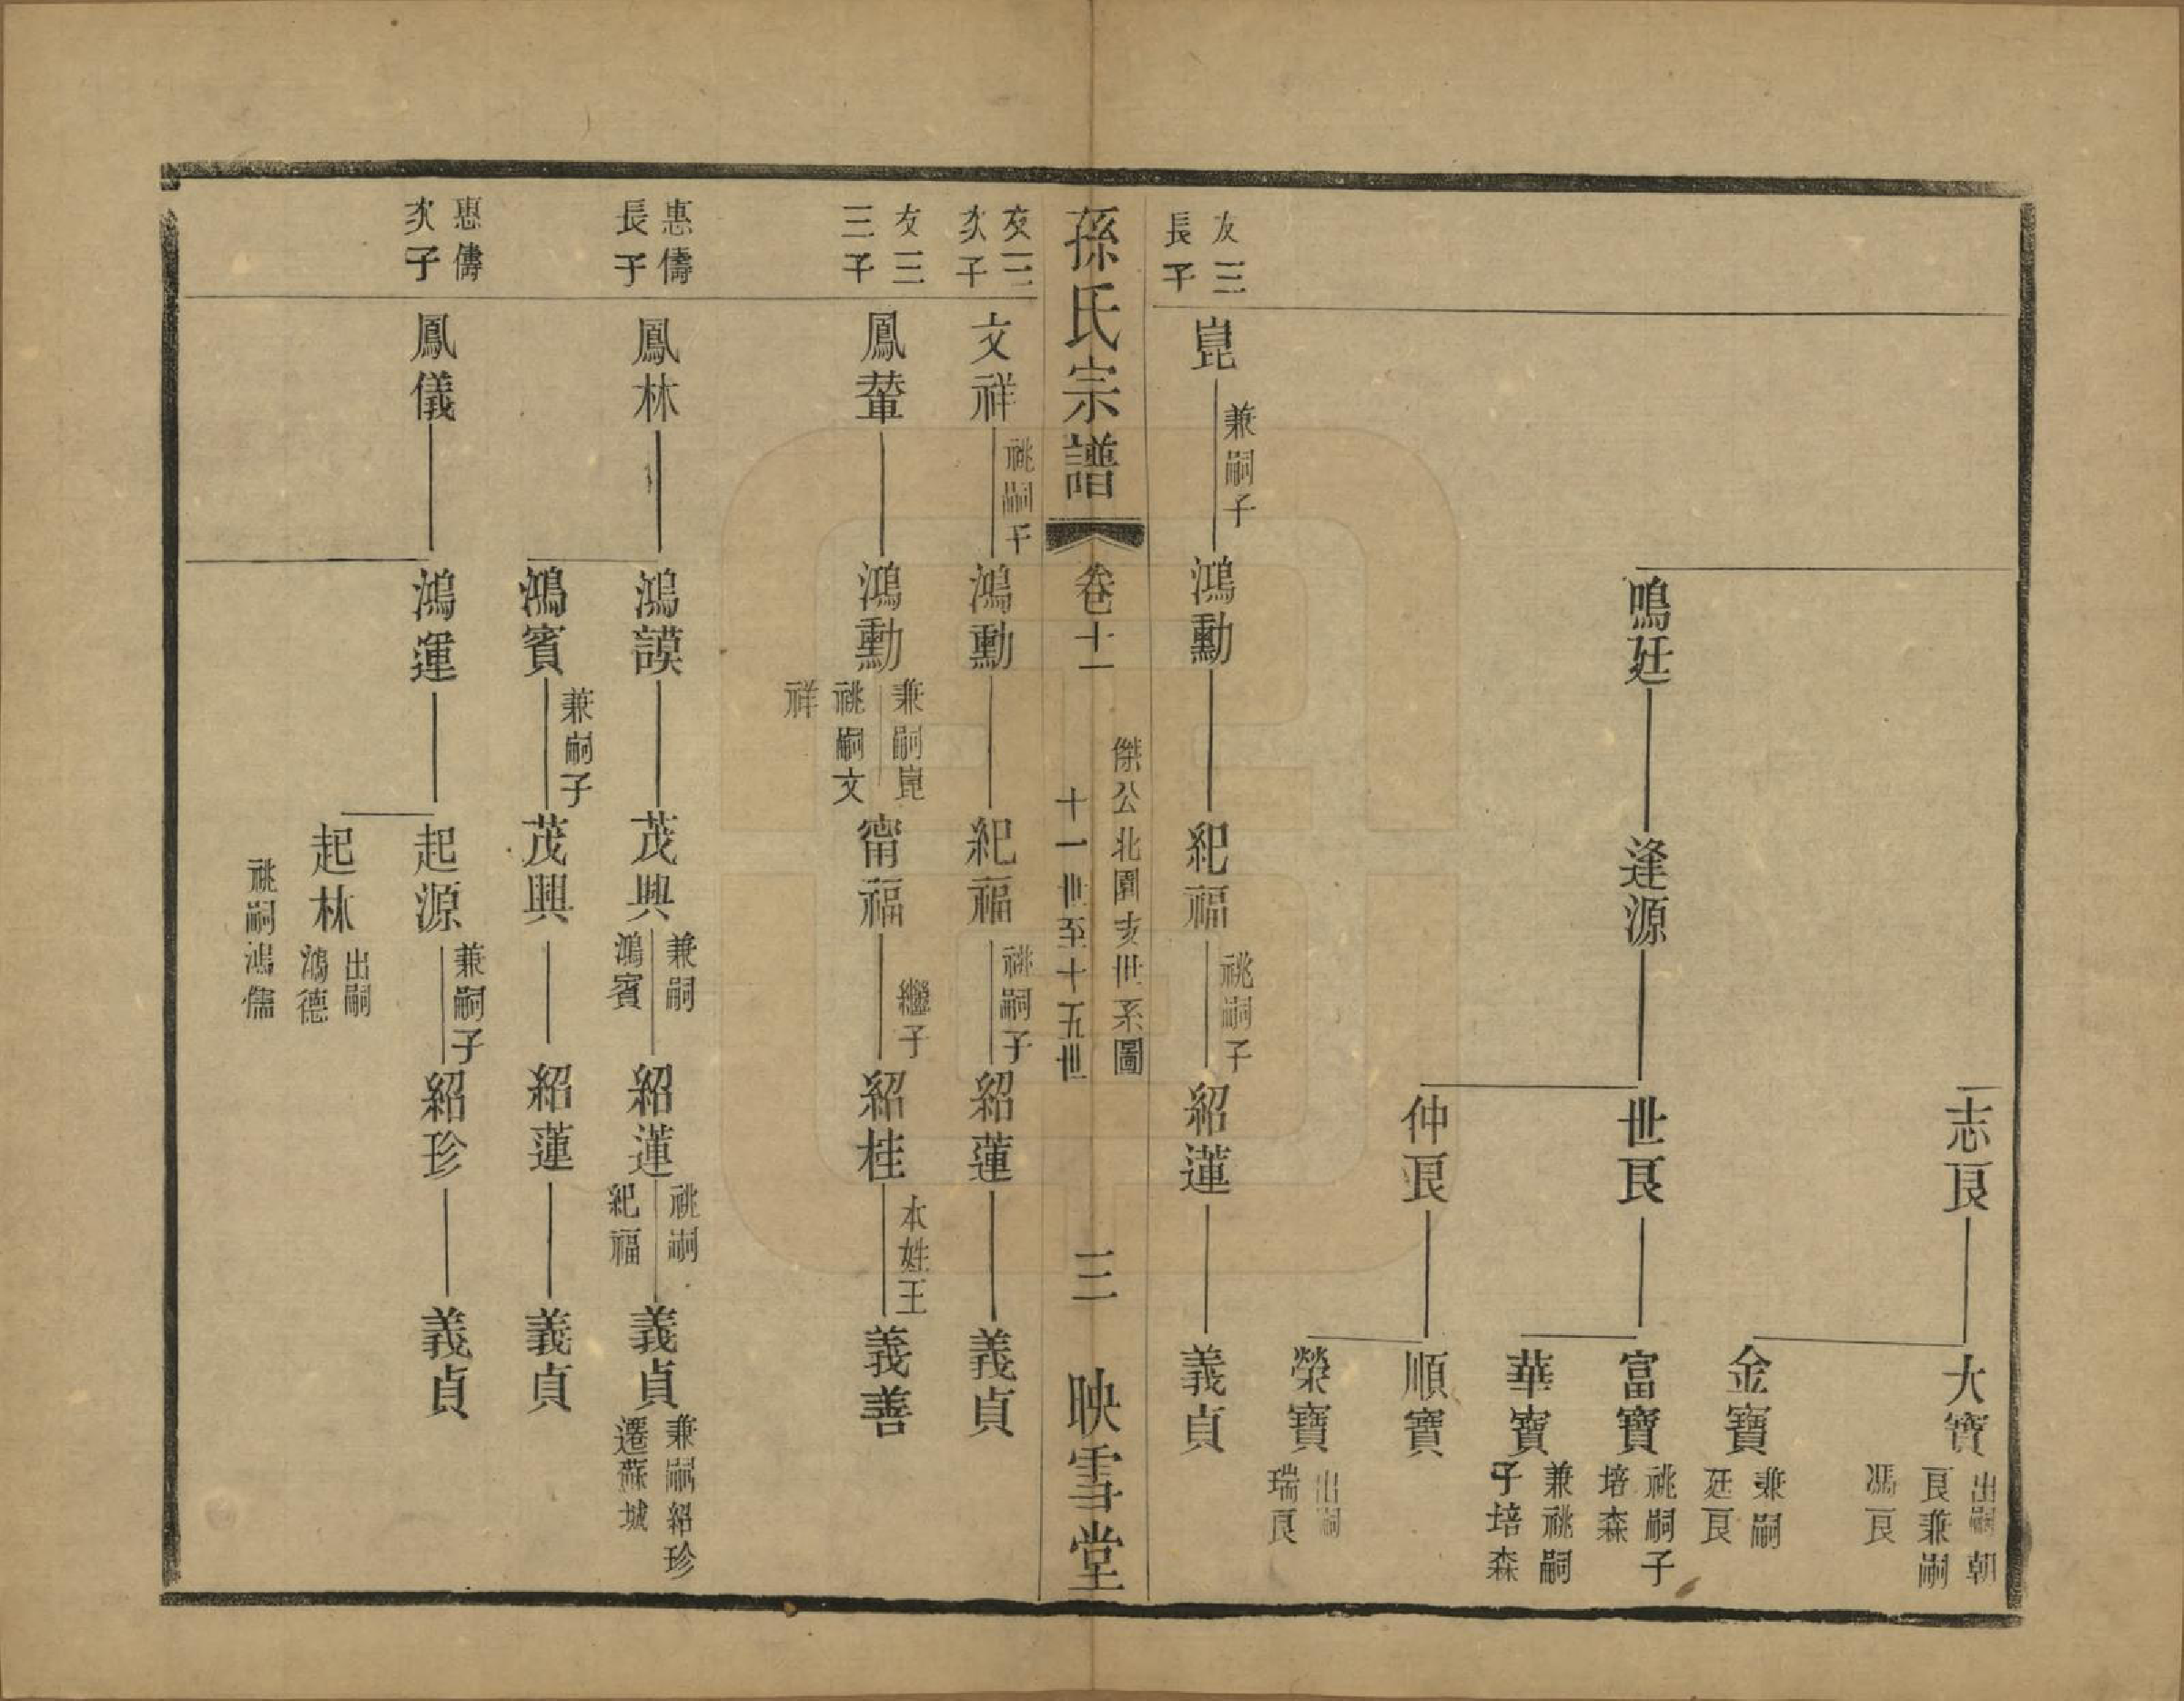 志良
大寶
出嗣朝
良兼嗣
馮良
金寶
兼嗣
廷良
鳴廷
逢源
世良
富寶
祧嗣子
培森
華寶
兼祧嗣
子培森
仲良
順寶
榮寶
出嗣
瑞良
友三
長子
崑
兼嗣子
鴻勳
紀福
祧嗣子
紹蓮
義貞
孫氏宗譜
卷十一
傑公北園支世系圖
十一世至十五世
三
映雪堂
友三
次子
文祥
祧嗣子
鴻勳
紀福
祧嗣子
紹蓮
義貞
友三
三子
鳳輦
鴻勳
兼嗣崑
祧嗣文
祥
甯福
繼子
紹桂
本姓王
義善
惠儔
長子
鳳林
鴻謨
茂興
兼嗣
鴻賓
紹蓮
祧嗣
紀福
義貞
兼嗣紹珍
遷蘇城
鴻賓
兼嗣子
茂興
紹蓮
義貞
惠儔
次子
鳳儀
鴻運
起源
兼嗣子
紹珍
義貞
起林
出嗣
鴻德
祧嗣鴻儒